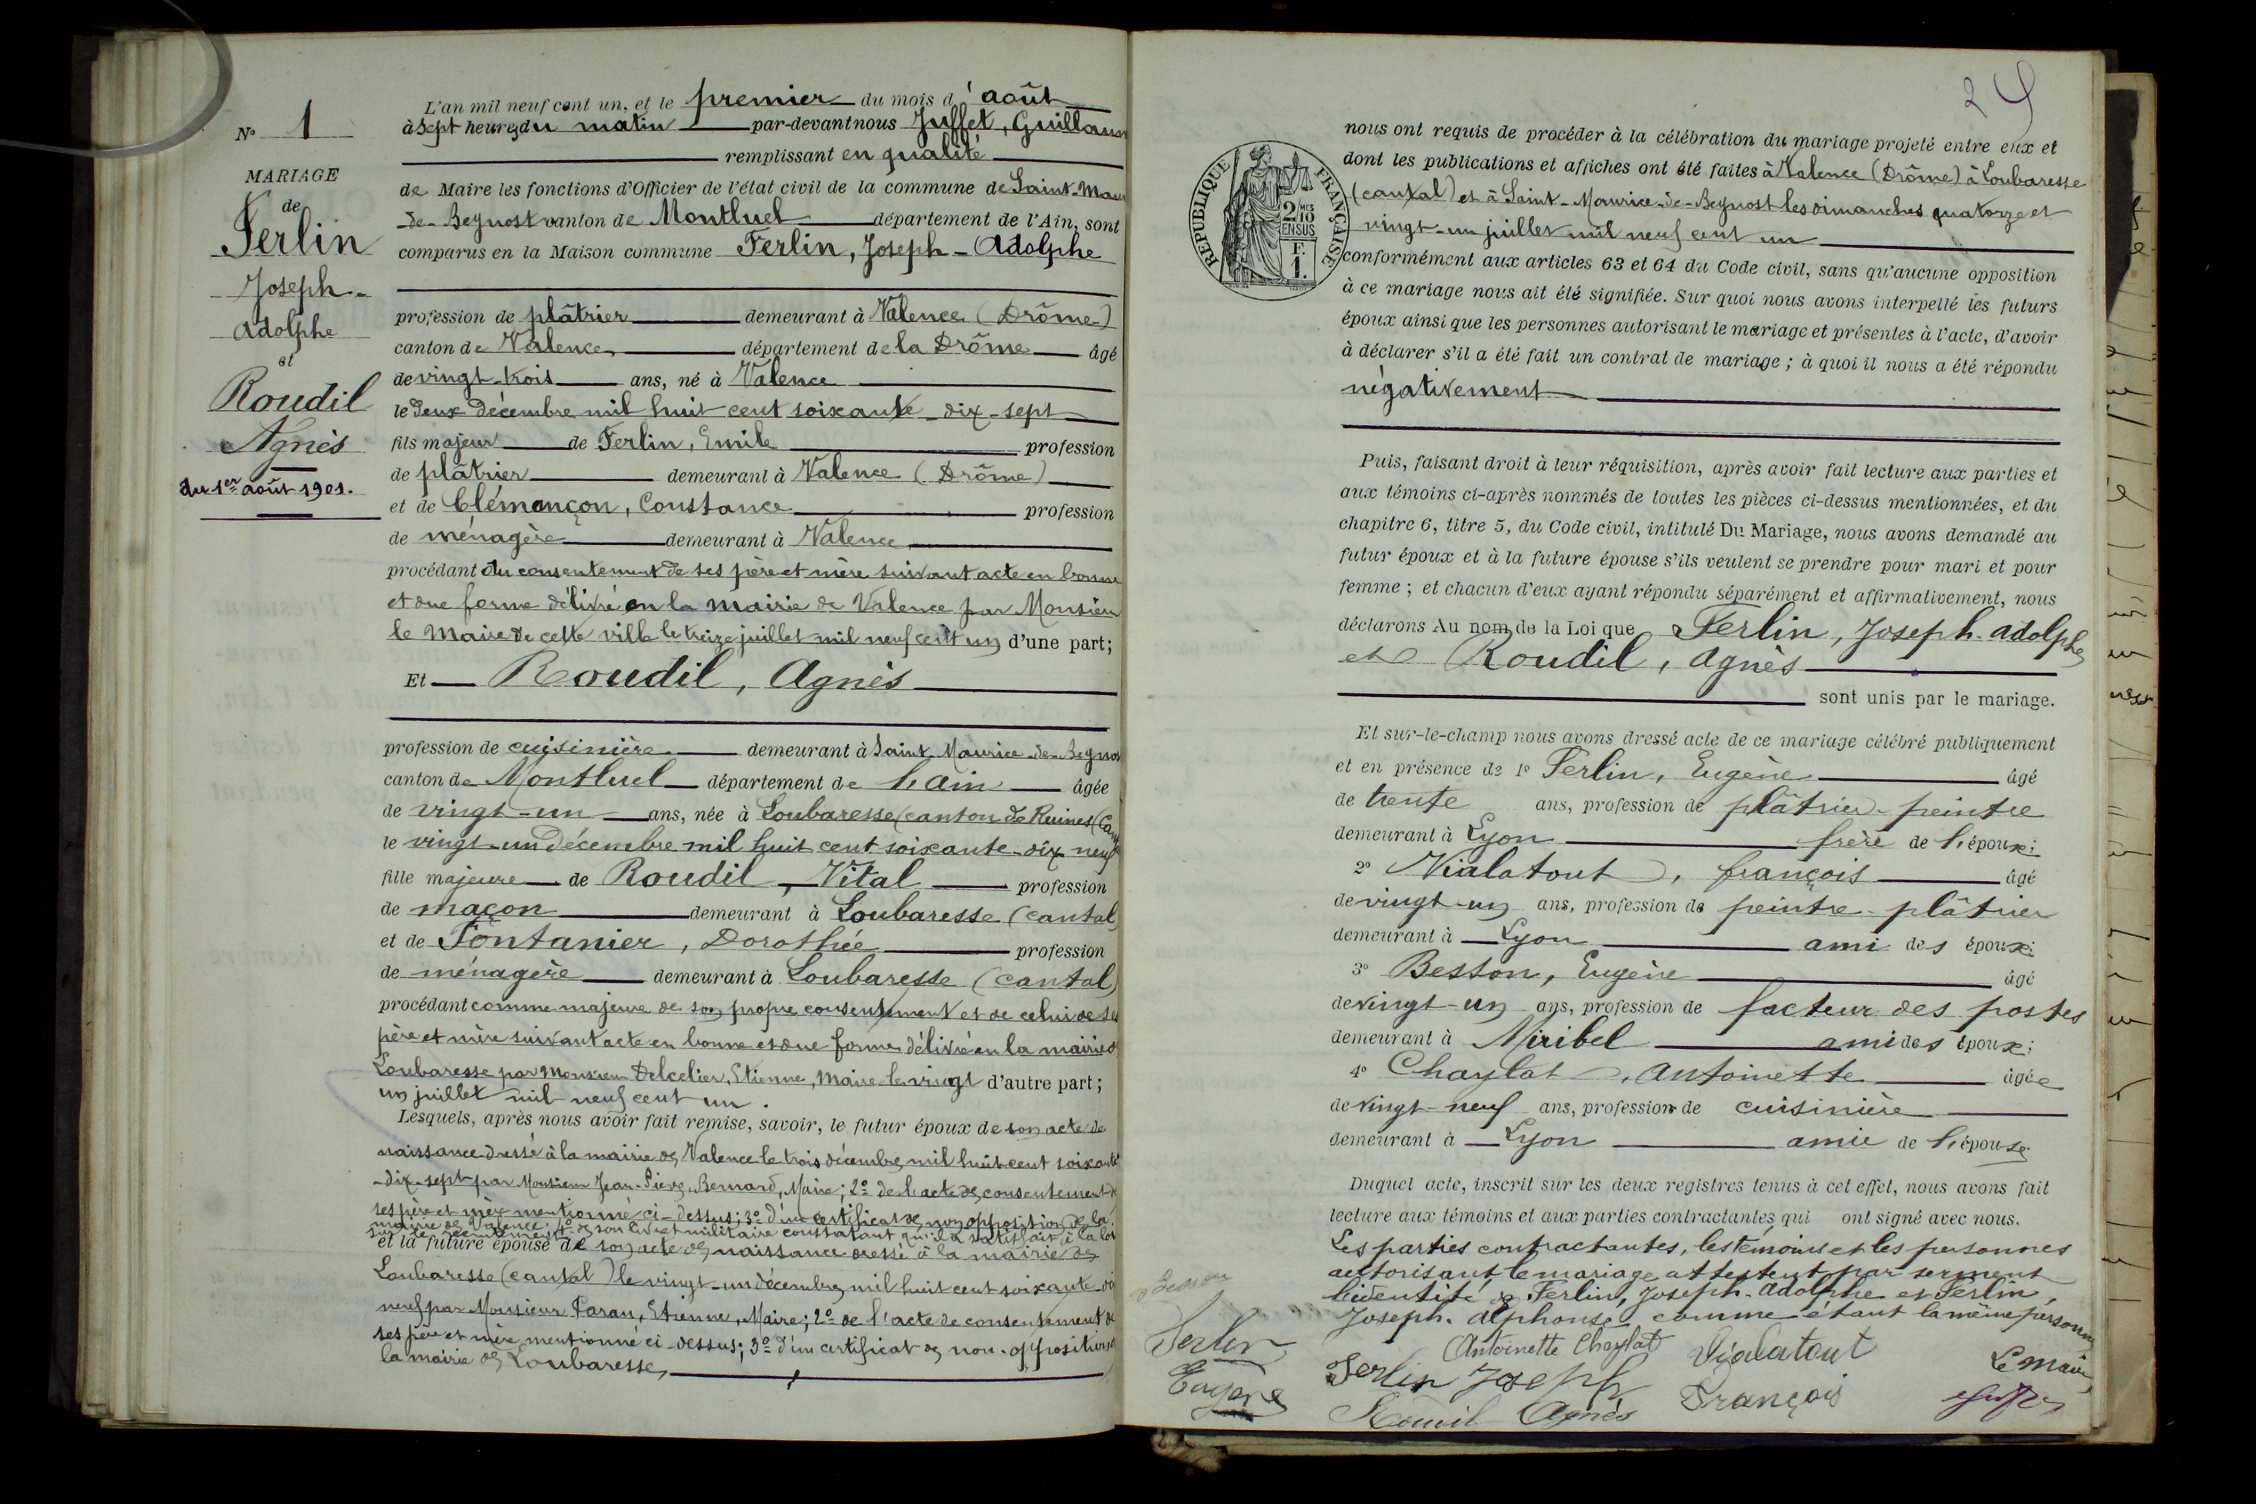 N° 1
MARIAGE
de
Ferlin
Joseph-
Adolphe
et
Roudil
Agnès
du 1er août 1901.
L'an mil neuf cent un, et le premier du mois d'août
à sept heures du matin par-devant nous Juffet, Guillaum
remplissant en qualité
de Maire les fonctions d'Officier de l'état civil de la commune de Saint-Mau
-de-Beynost canton de Montluel département de l'Ain, sont
comparus en la Maison commune Ferlin, Joseph-Adolphe
profession de plâtrier demeurant à Valence (Drôme)
canton de Valence département de la Drôme âgé
de vingt-trois ans, né à Valence
le deux décembre mil huit cent soixante-dix-sept
fils majeur de Ferlin, Emile profession
de plâtrier demeurant à Valence (Drôme)
et de Clémançon, Constance profession
de ménagère demeurant à Valence
procédant du consentement de ses père et mère suivant acte en bonne
et due forme délivré en la mairie de Valence par Monsieu
le Maire de cette ville le treize juillet mil neuf cent un d'une part;
Et Roudil, Agnès
profession de cuisinière demeurant à Saint-Maurice-de-Beynos
canton de Montluel département de l'Ain âgée
de vingt-un ans, née à Loubaresse (canton de Ruines (Can
le vingt-un décembre mil huit cent soixante-dix neuf
fille majeure de Roudil, Vital profession
de maçon demeurant à Loubaresse (cantal)
et de Fontanier, Dorothée profession
de ménagère demeurant à Loubaresse (cantal)
procédant comme majeure de son propre consentement et de celui de ses
père et mère suivant acte en bonne et due forme délivré en la mairie de
Loubaresse par Monsieur Delcelier, Etienne, Maire le vingt d'autre part;
un juillet mil neuf cent un.
Lesquels, après nous avoir fait remise, savoir, le futur époux de son acte de
naissance dressé à la mairie de Valence le trois décembre mil huit cent soixante
-dix-sept par Monsieur Jean-Pierre Bernard, Maire; 2° de l'acte de consentement de
ses père et mère mentionné ci-dessus; 3° d'un certificat de non opposition de la
mairie de Valence; 4° de son livret militaire constatant qu'il a satisfait à la loi
sur le recrutement
et la future épouse de son acte de naissance dressé à la mairie de
Loubaresse (cantal) le vingt-un décembre mil huit cent soixante-dix
neuf par Monsieur Paran, Etienne, Maire; 2° de l'acte de consentement de
ses père et mère mentionné ci-dessus; 3° d'un certificat de non-opposition de
la mairie de Loubaresse,
2
RÉPUBLIQUE FRANÇAISE
2/10 MES
EN SUS
F.
1.
nous ont requis de procéder à la célébration du mariage projeté entre eux et
dont les publications et affiches ont été faites à Valence (Drôme) à Loubaresse
(cantal) et à Saint-Maurice-de-Beynost les dimanches quatorze et
vingt-un juillet mil neuf cent un
conformément aux articles 63 et 64 du Code civil, sans qu'aucune opposition
à ce mariage nous ait été signifiée. Sur quoi nous avons interpellé les futurs
époux ainsi que les personnes autorisant le mariage et présentes à l'acte, d'avoir
à déclarer s'il a été fait un contrat de mariage; à quoi il nous a été répondu
négativement
Puis, faisant droit à leur réquisition, après avoir fait lecture aux parties et
aux témoins ci-après nommés de toutes les pièces ci-dessus mentionnées, et du
chapitre 6, titre 5, du Code civil, intitulé Du Mariage, nous avons demandé au
futur époux et à la future épouse s'ils veulent se prendre pour mari et pour
femme; et chacun d'eux ayant répondu séparément et affirmativement, nous
déclarons Au nom de la Loi que Ferlin, Joseph-Adolphe
et Roudil, Agnès
sont unis par le mariage.
Et sur-le-champ nous avons dressé acte de ce mariage célébré publiquement
et en présence de 1° Ferlin, Eugène âgé
de trente ans, profession de plâtrier-peintre
demeurant à Lyon frère de l'époux;
2° Vialatout, françois âgé
de vingt-un ans, profession de peintre-plâtrier
demeurant à Lyon ami des époux;
3° Besson, Eugène âgé
de vingt-un ans, profession de facteur des postes
demeurant à Miribel ami des époux;
4° Chaylat, Antoinette âgée
de vingt-neuf ans, profession de cuisinière
demeurant à Lyon amie de l'épouse.
Duquel acte, inscrit sur les deux registres tenus à cet effet, nous avons fait
lecture aux témoins et aux parties contractantes qui ont signé avec nous.
Les parties contractantes, les témoins et les personnes
autorisant le mariage attestent par serment
l'identité de Ferlin, Joseph-Adolphe et Ferlin,
Joseph-Alphonse, comme étant la même personne
Besson
Ferlin
Eugène
Antoinette Chaylat
Ferlin Joseph
Roudil Agnès
Vialatout
François
Le Maire,
Juffet